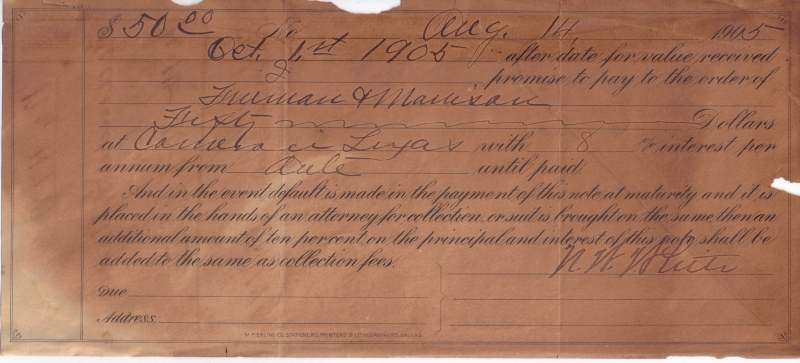 $50 00 To Aug. 14, 1905
Oct. 1st 1905 after date for value received
I promise to pay to the order of
Freeman & Morrison
Fifty Dollars
at Texas with 8 % interest per
annum from date until paid.
And in the event default is made in the payment of this note at maturity and it is
placed in the hands of an attorney for collection, or suit is brought on the same, then an
additional amount of ten per cent. on the principal and interest of this note shall be
added to the same as collection fees.
N. W. White
Due
Address